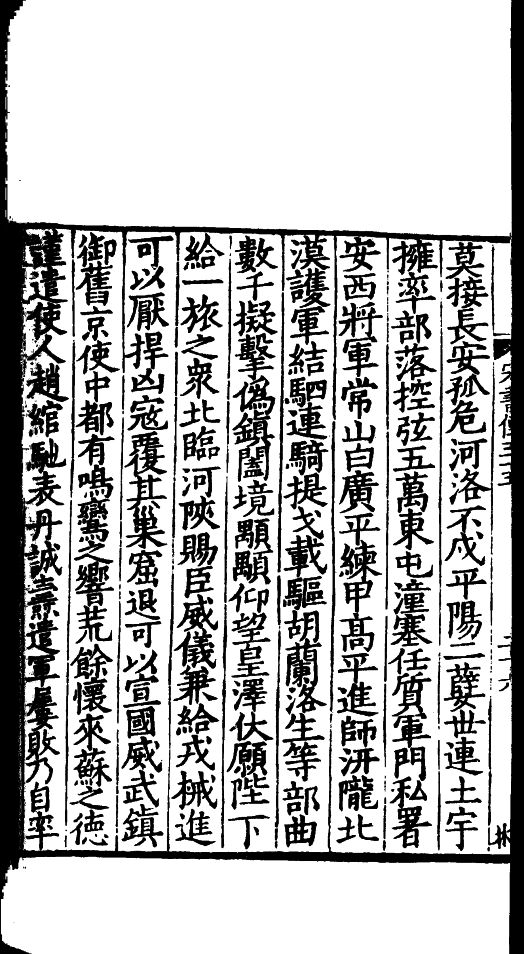 莫接長安孤危河洛不戍平陽二薛世連土宇
擁率部落控弦五萬東屯潼塞任質軍門私署
安西將軍常山白廣平練甲高平進師汧隴北
漠護軍結駟連騎提戈載驅胡蘭洛生等部曲
數千擬擊偽鎮闔境顒顒仰望皇澤伏願陛下
給一旅之衆北臨河陝賜臣威儀兼給戎械進
可以厭捍凶寇覆其巢窟退可以宣國威武鎮
御舊京使中都有鳴鸞之響荒餘懷來蘇之徳
謹遣使人趙綰馳表丹誠燾遣軍屢敗乃自率